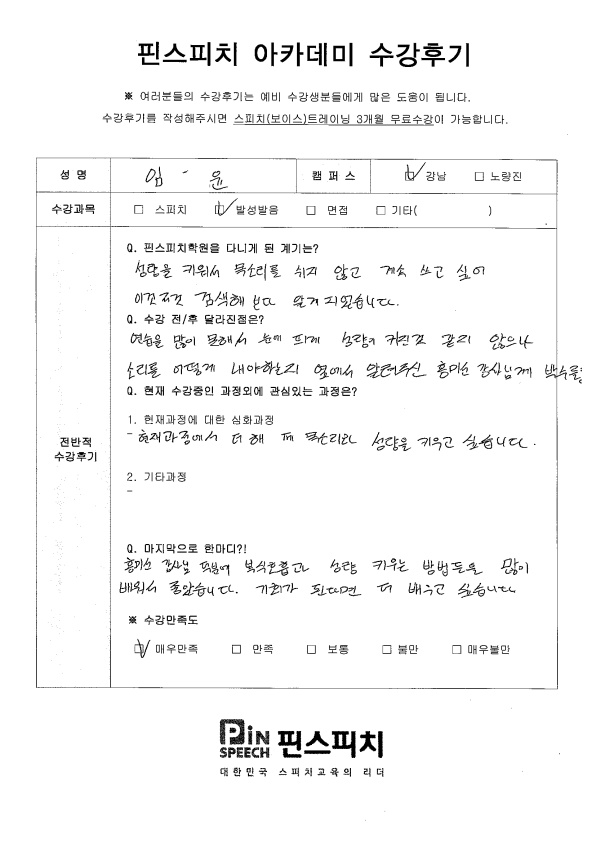 핀스피치 아카데미 수강후기
※ 여러분들의 수강후기는 예비 수강생분들에게 많은 도움이 됩니다.
수강후기를 작성해주시면 스피치(보이스)트레이닝 3개월 무료수강이 가능합니다.
성 명 임 - 윤 캠 퍼 스 ☑ 강남 □ 노량진
수강과목 □ 스피치 ☑ 발성발음 □ 면접 □ 기타( )
전반적
수강후기
Q. 핀스피치학원을 다니게 된 계기는?
성량을 키워서 목소리를 쉬지 않고 계속 쓰고 싶어
이것저것 검색해 보다 알게 되었습니다.
Q. 수강 전/후 달라진점은?
연습을 많이 못해서 눈에 띄게 성량이 커진것 같지 않으나
소리를 어떻게 내야하는지 옆에서 알려주신 홍미소 강사님께 박수를
Q. 현재 수강중인 과정외에 관심있는 과정은?
1. 현재과정에 대한 심화과정
- 현재과정에서 더 해 목소리와 성량을 키우고 싶습니다.
2. 기타과정
-
Q. 마지막으로 한마디?!
홍미소 강사님 덕분에 복식호흡과 성량 키우는 방법들을 많이
배워서 좋았습니다. 기회가 된다면 더 배우고 싶습니다
※ 수강만족도
☑ 매우만족 □ 만족 □ 보통 □ 불만 □ 매우불만
PIN SPEECH 핀스피치
대한민국 스피치교육의 리더